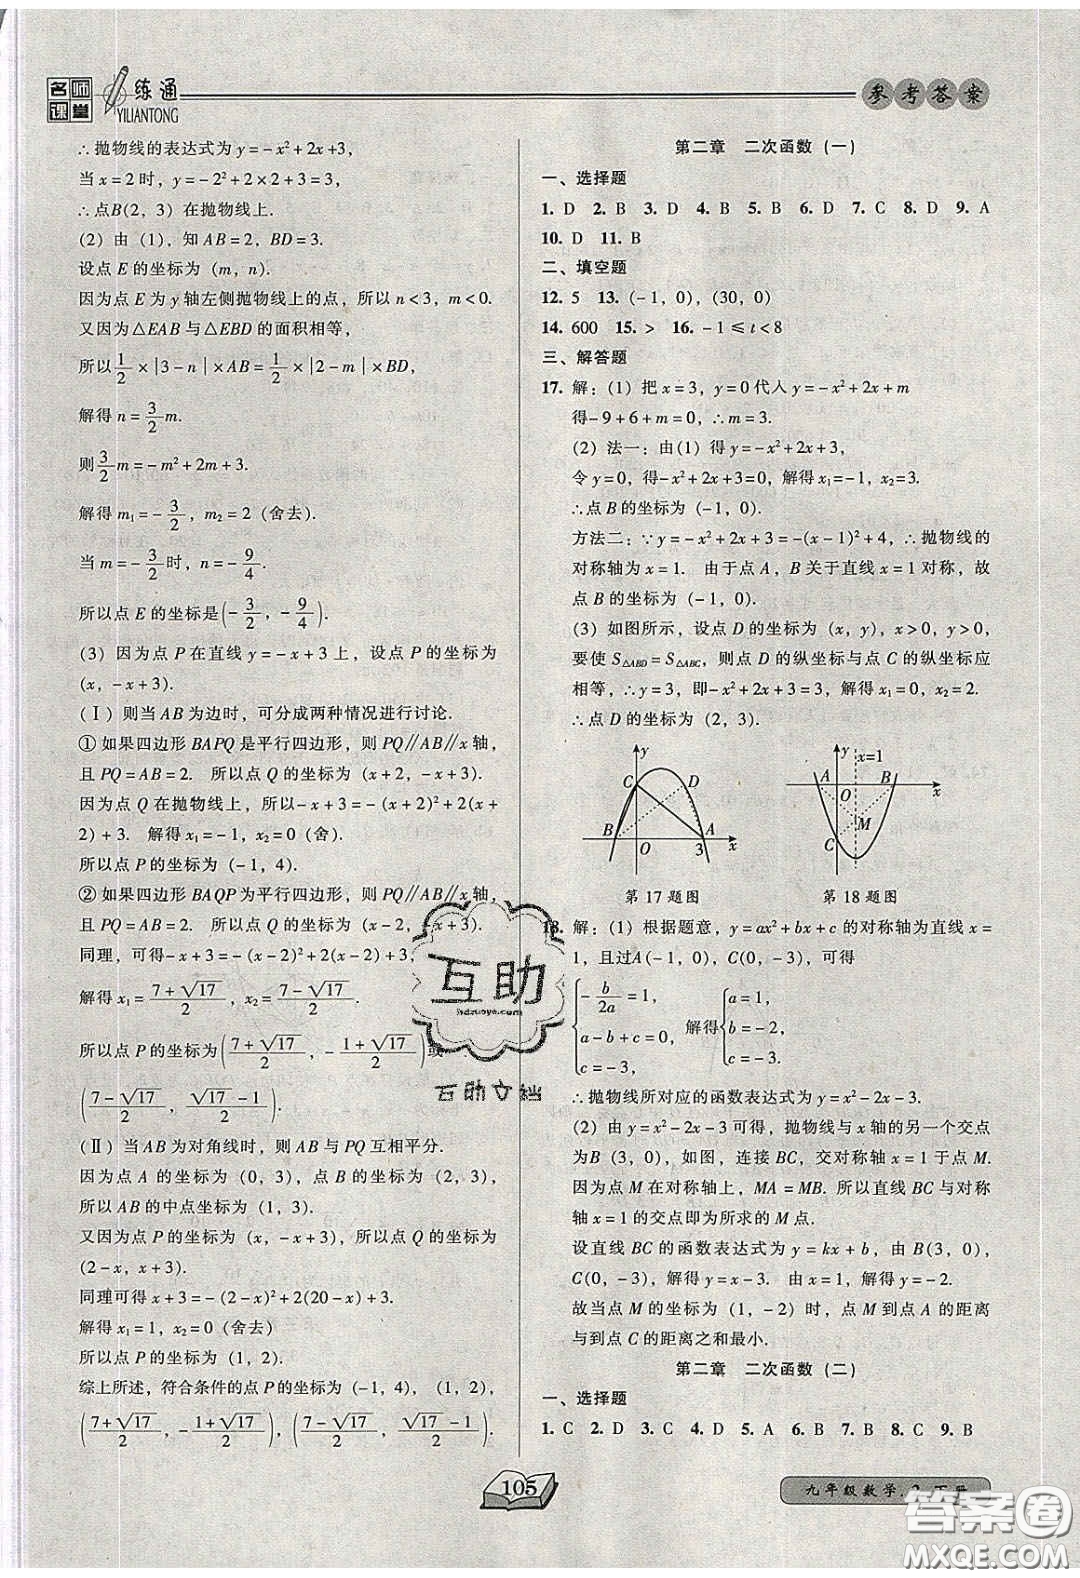 名师课堂
一练通
YILIANTONG
参考答案
∴抛物线的表达式为y=-x²+2x+3,
当x=2时，y=-2²+2×2+3=3,
∴点B(2，3)在抛物线上.
(2) 由(1)，知AB=2，BD=3.
设点E的坐标为(m，n).
因为点E为y轴左侧抛物线上的点，所以n<3，m<0.
又因为△EAB与△EBD的面积相等，
所以1/2×|3-n|×AB=1/2×|2-m|×BD,
解得n=3/2m.
则3/2m=-m²+2m+3.
解得m₁=-3/2，m₂=2(舍去).
当m=-3/2时，n=-9/4.
所以点E的坐标是(-3/2，-9/4).
(3) 因为点P在直线y=-x+3上，设点P的坐标为
(x，-x+3).
(Ⅰ)则当AB为边时，可分成两种情况进行讨论.
①如果四边形BAPQ是平行四边形，则PQ∥AB∥x轴，
且PQ=AB=2. 所以点Q的坐标为(x+2，-x+3).
因为点Q在抛物线上，所以-x+3=-(x+2)²+2(x+
2)+3. 解得x₁=-1，x₂=0(舍).
所以点P的坐标为(-1，4).
②如果四边形BAQP为平行四边形，则PQ∥AB∥x轴，
且PQ=AB=2. 所以点Q的坐标为(x-2，-x+3).
同理，可得-x+3=-(x-2)²+2(x-2)+3,
解得x₁=(7+√17)/2，x₂=(7-√17)/2.
所以点P的坐标为((7+√17)/2，-(1+√17)/2)或
((7-√17)/2，(√17-1)/2).
(Ⅱ)当AB为对角线时，则AB与PQ互相平分.
因为点A的坐标为(0，3)，点B的坐标为(2，3)，
所以AB的中点坐标为(1，3).
又因为点P的坐标为(x，-x+3)，所以点Q的坐标为
(2-x，x+3).
同理可得x+3=-(2-x)²+2(20-x)+3.
解得x₁=1，x₂=0(舍去)
所以点P的坐标为(1，2).
综上所述，符合条件的点P的坐标为(-1，4)，(1，2)，
((7+√17)/2，-(1+√17)/2)，((7-√17)/2，(√17-1)/2).
第二章 二次函数(一)
一、选择题
1. D 2. B 3. D 4. B 5. B 6. D 7. C 8. D 9. A
10. D 11. B
二、填空题
12. 5 13. (-1，0)，(30，0)
14. 600 15. > 16. -1≤t<8
三、解答题
17. 解：(1) 把x=3，y=0代人y=-x²+2x+m
得-9+6+m=0，∴m=3.
(2) 法一：由(1)得y=-x²+2x+3,
令y=0，得-x²+2x+3=0，解得x₁=-1，x₂=3.
∴点B的坐标为(-1，0).
方法二：∵y=-x²+2x+3=-(x-1)²+4，∴抛物线的
对称轴为x=1. 由于点A，B关于直线x=1对称，故
点B的坐标为(-1，0).
(3) 如图所示，设点D的坐标为(x，y)，x>0，y>0,
要使S△ABD=S△ABC，则点D的纵坐标与点C的纵坐标应
相等，∴y=3，即-x²+2x+3=3，解得x₁=0，x₂=2.
∴点D的坐标为(2，3).
y C D B O 3 A x
第17题图
y x=1 A B O x M C
第18题图
18. 解：(1) 根据题意，y=ax²+bx+c的对称轴为直线x=
1，且过A(-1，0)，C(0，-3)，可得
{-b/2a=1, a-b+c=0, c=-3. 解得{a=1, b=-2, c=-3.
∴抛物线所对应的函数表达式为y=x²-2x-3.
(2) 由y=x²-2x-3可得，抛物线与x轴的另一个交点
为B(3，0)，如图，连接BC，交对称轴x=1于点M.
因为点M在对称轴上，MA=MB. 所以直线BC与对称
轴x=1的交点即为所求的M点.
设直线BC的函数表达式为y=kx+b，由B(3，0)，
C(0，-3)，解得y=x-3. 由x=1，解得y=-2.
故当点M的坐标为(1，-2)时，点M到点A的距离
与到点C的距离之和最小.
第二章 二次函数(二)
一、选择题
1. C 2. D 3. D 4. C 5. A 6. B 7. B 8. C 9. B
互助
hdzuoye.com
互助文档
105
九年级数学.
下册
答案圈
MXQE.COM